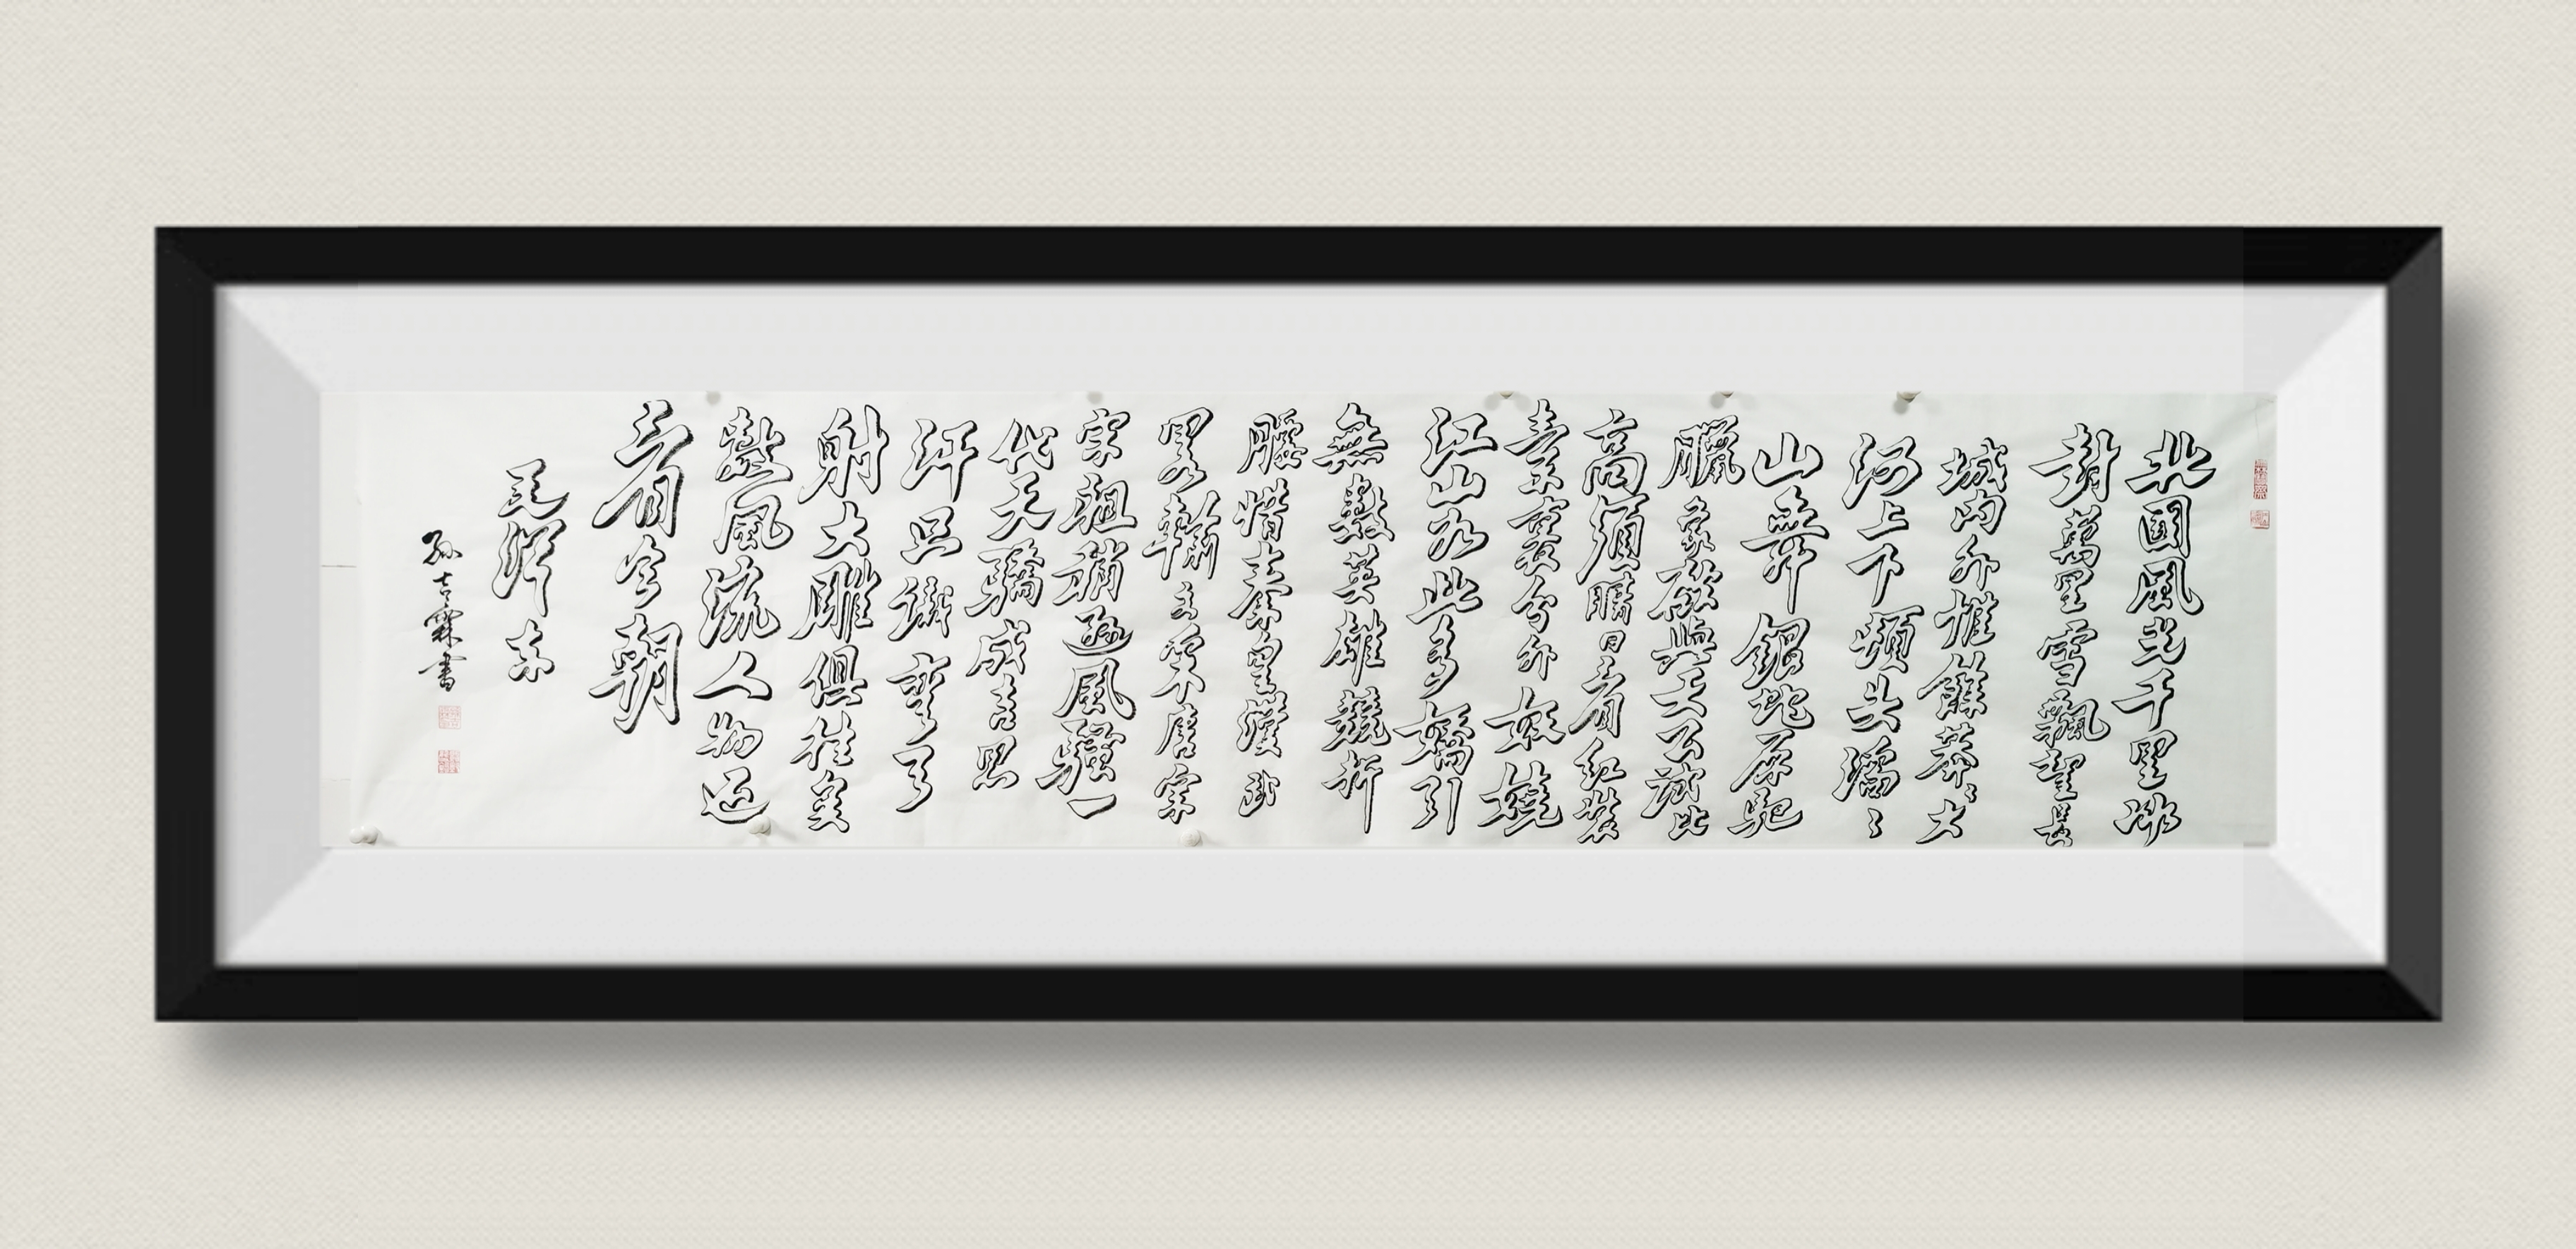 北國風光千里冰
封萬里雪飄望長
城内外惟餘莽〻大
河上下頓失滔〻
山舞銀蛇原馳
臘象欲與天公試比
高須晴日看紅裝
素裹分外妖嬈
江山如此多嬌引
無數英雄競折
腰惜秦皇漢武
畧輸文采唐宗
宋祖稍遜風騷一
代天驕成吉思
汗只識彎弓
射大雕俱往矣
數風流人物還
看今朝
毛澤東
孙吉霖書